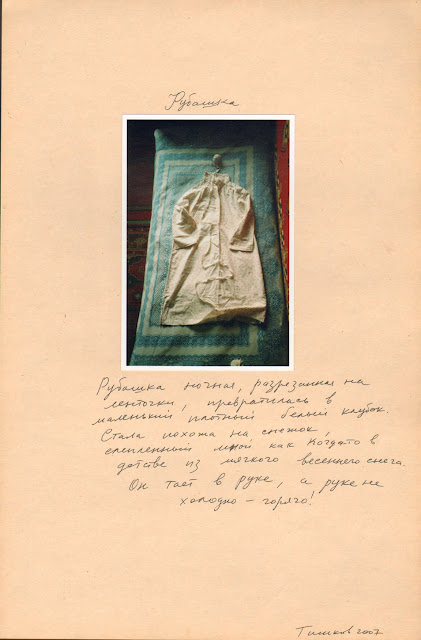 Рубашка
Рубашка ночная, разрезанная на
ленточки, превратилась в
маленький плотный белый клубок.
Стала похожа на снежок,
слепленный мной как когдато в
детстве из мягкого весеннего снега.
Он тает в руке, а руке не
холодно – горячо!
Тишков 2007